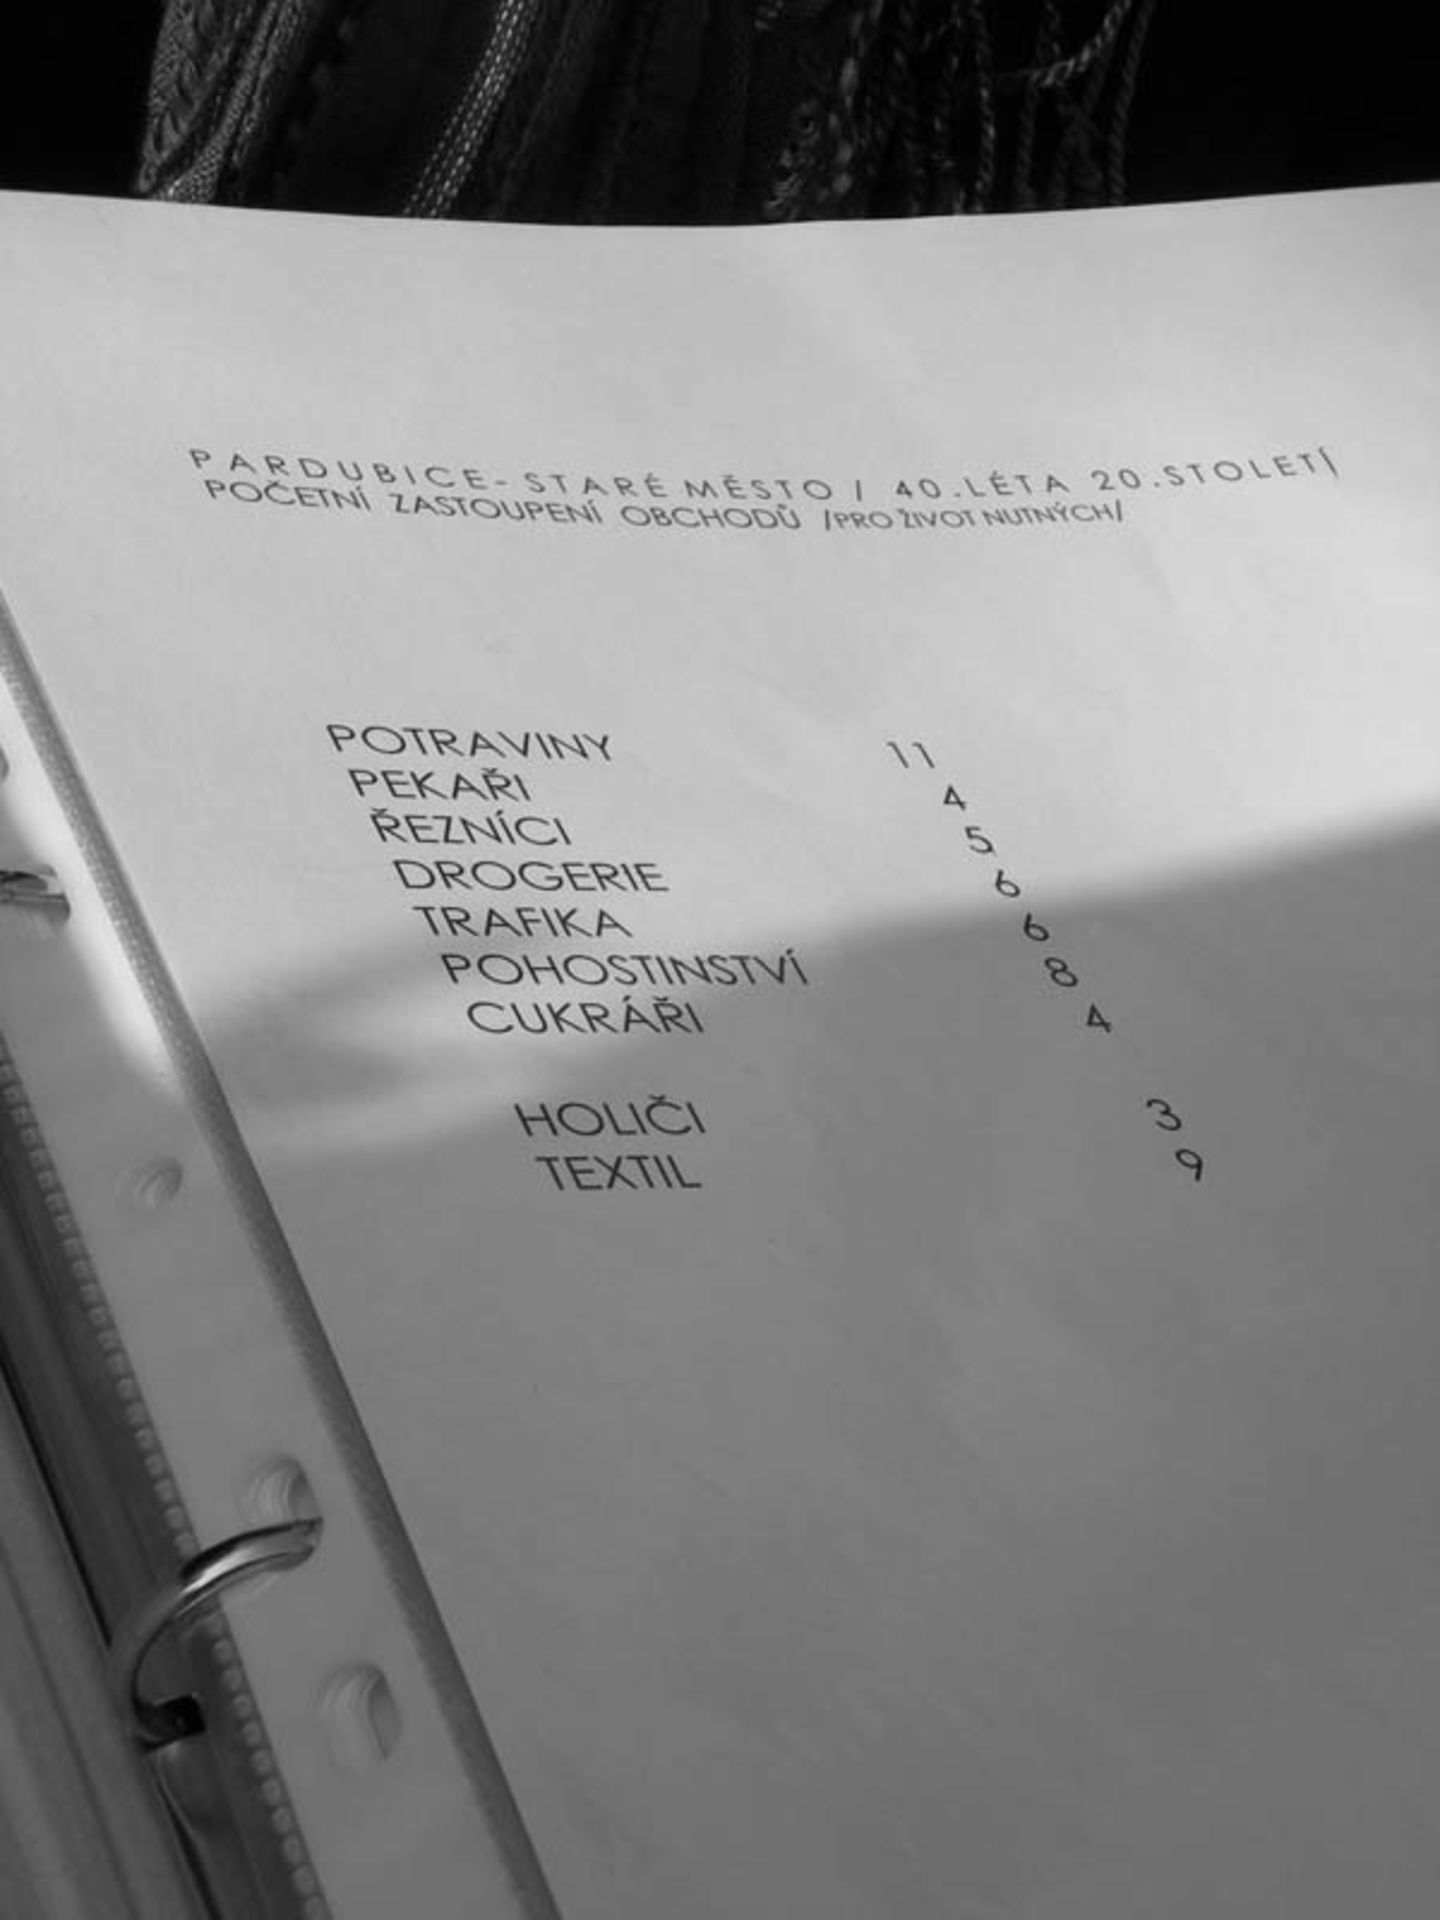 PARDUBICE-STARÉ MĚSTO / 40.LÉTA 20.STOLETÍ
POČETNÍ ZASTOUPENÍ OBCHODŮ /PRO ŽIVOT NUTNÝCH/
POTRAVINY 11
PEKAŘI 4
ŘEZNÍCI 5
DROGERIE 6
TRAFIKA 6
POHOSTINSTVÍ 8
CUKRÁŘI 4
HOLIČI 3
TEXTIL 9